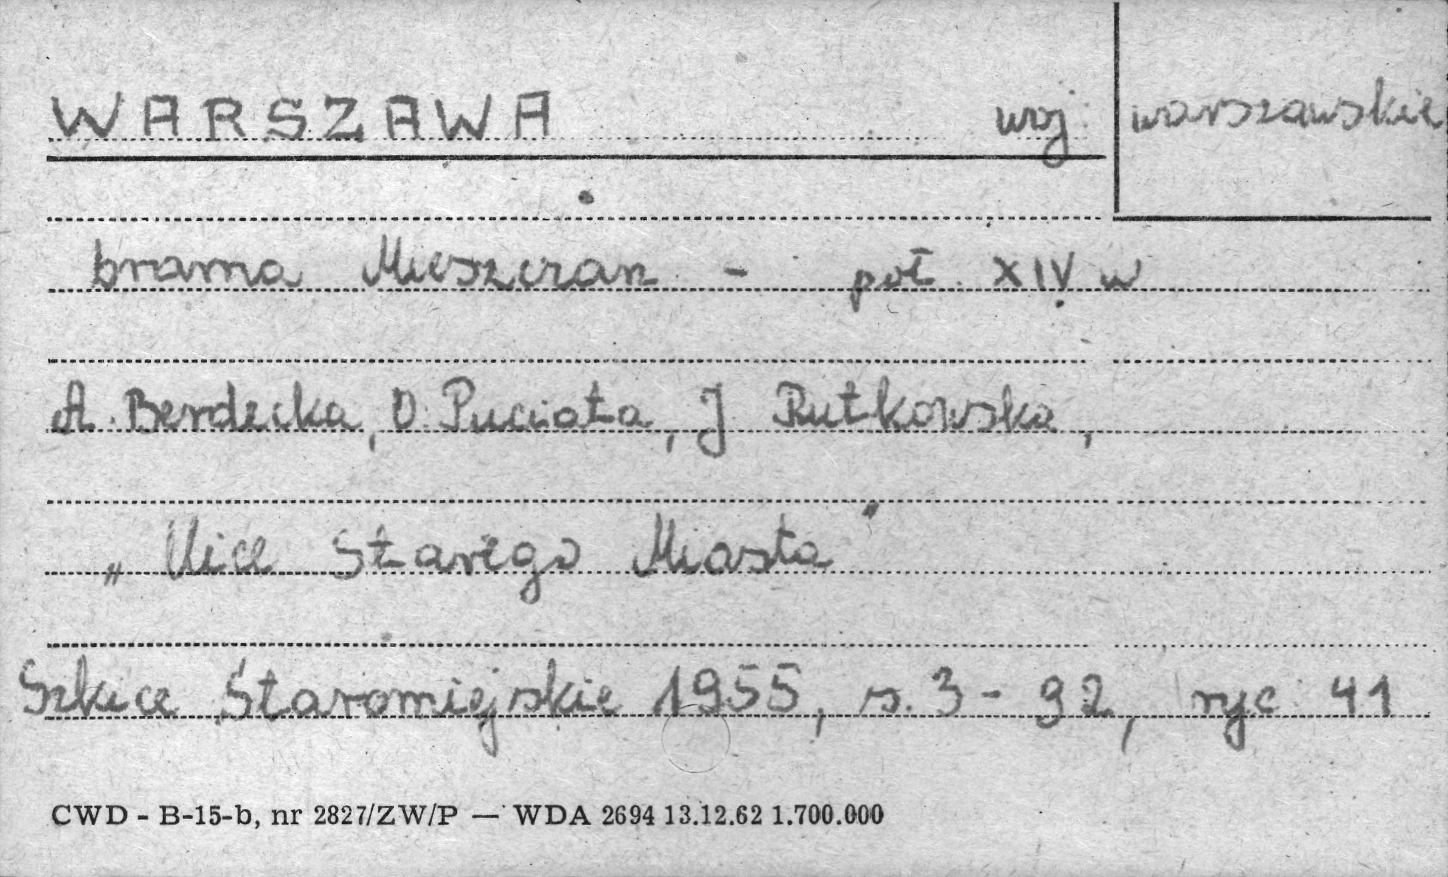 WARSZAWA woj. warszawskie
brama Mieszczan - poł. XIV w
A. Berdecka, O. Puciata, J Rutkowska,
„Ulice Starego Miasta"
Szkice Staromiejskie 1955, s. 3-92, ryc 41
CWD - B-15-b, nr 2827/ZW/P — WDA 2694 13.12.62 1.700.000